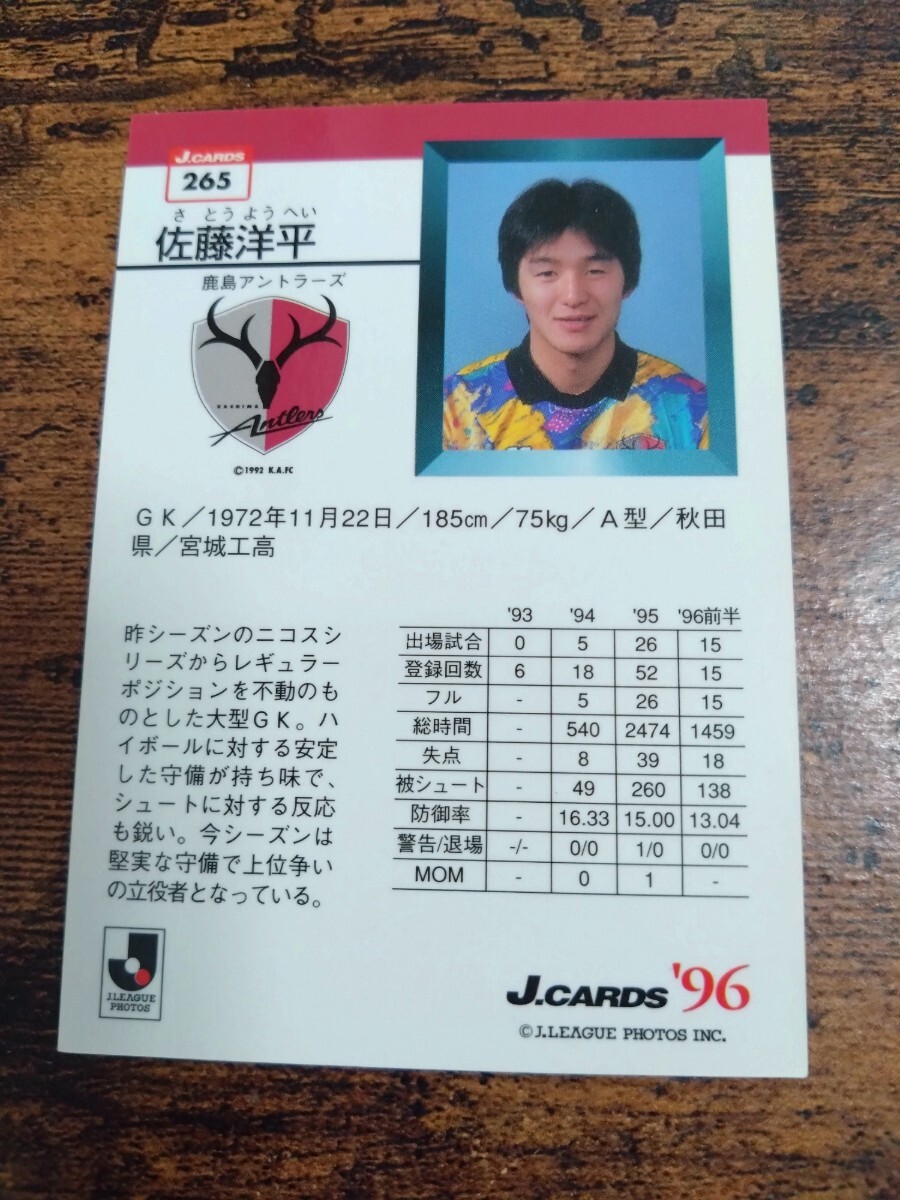 J.CARDS
265
さ とう よう へい
佐藤洋平
鹿島アントラーズ
KASHIMA
Antlers
©1992 K.A.FC
GK／1972年11月22日／185cm／75kg／A型／秋田
県／宮城工高
昨シーズンのニコスシ
リーズからレギュラー
ポジションを不動のも
のとした大型GK。ハ
イボールに対する安定
した守備が持ち味で、
シュートに対する反応
も鋭い。今シーズンは
堅実な守備で上位争い
の立役者となっている。
'93 '94 '95 '96前半
出場試合 0 5 26 15
登録回数 6 18 52 15
フル - 5 26 15
総時間 - 540 2474 1459
失点 - 8 39 18
被シュート - 49 260 138
防御率 - 16.33 15.00 13.04
警告/退場 -/- 0/0 1/0 0/0
MOM - 0 1 -
J.LEAGUE
PHOTOS
J.CARDS '96
©J.LEAGUE PHOTOS INC.